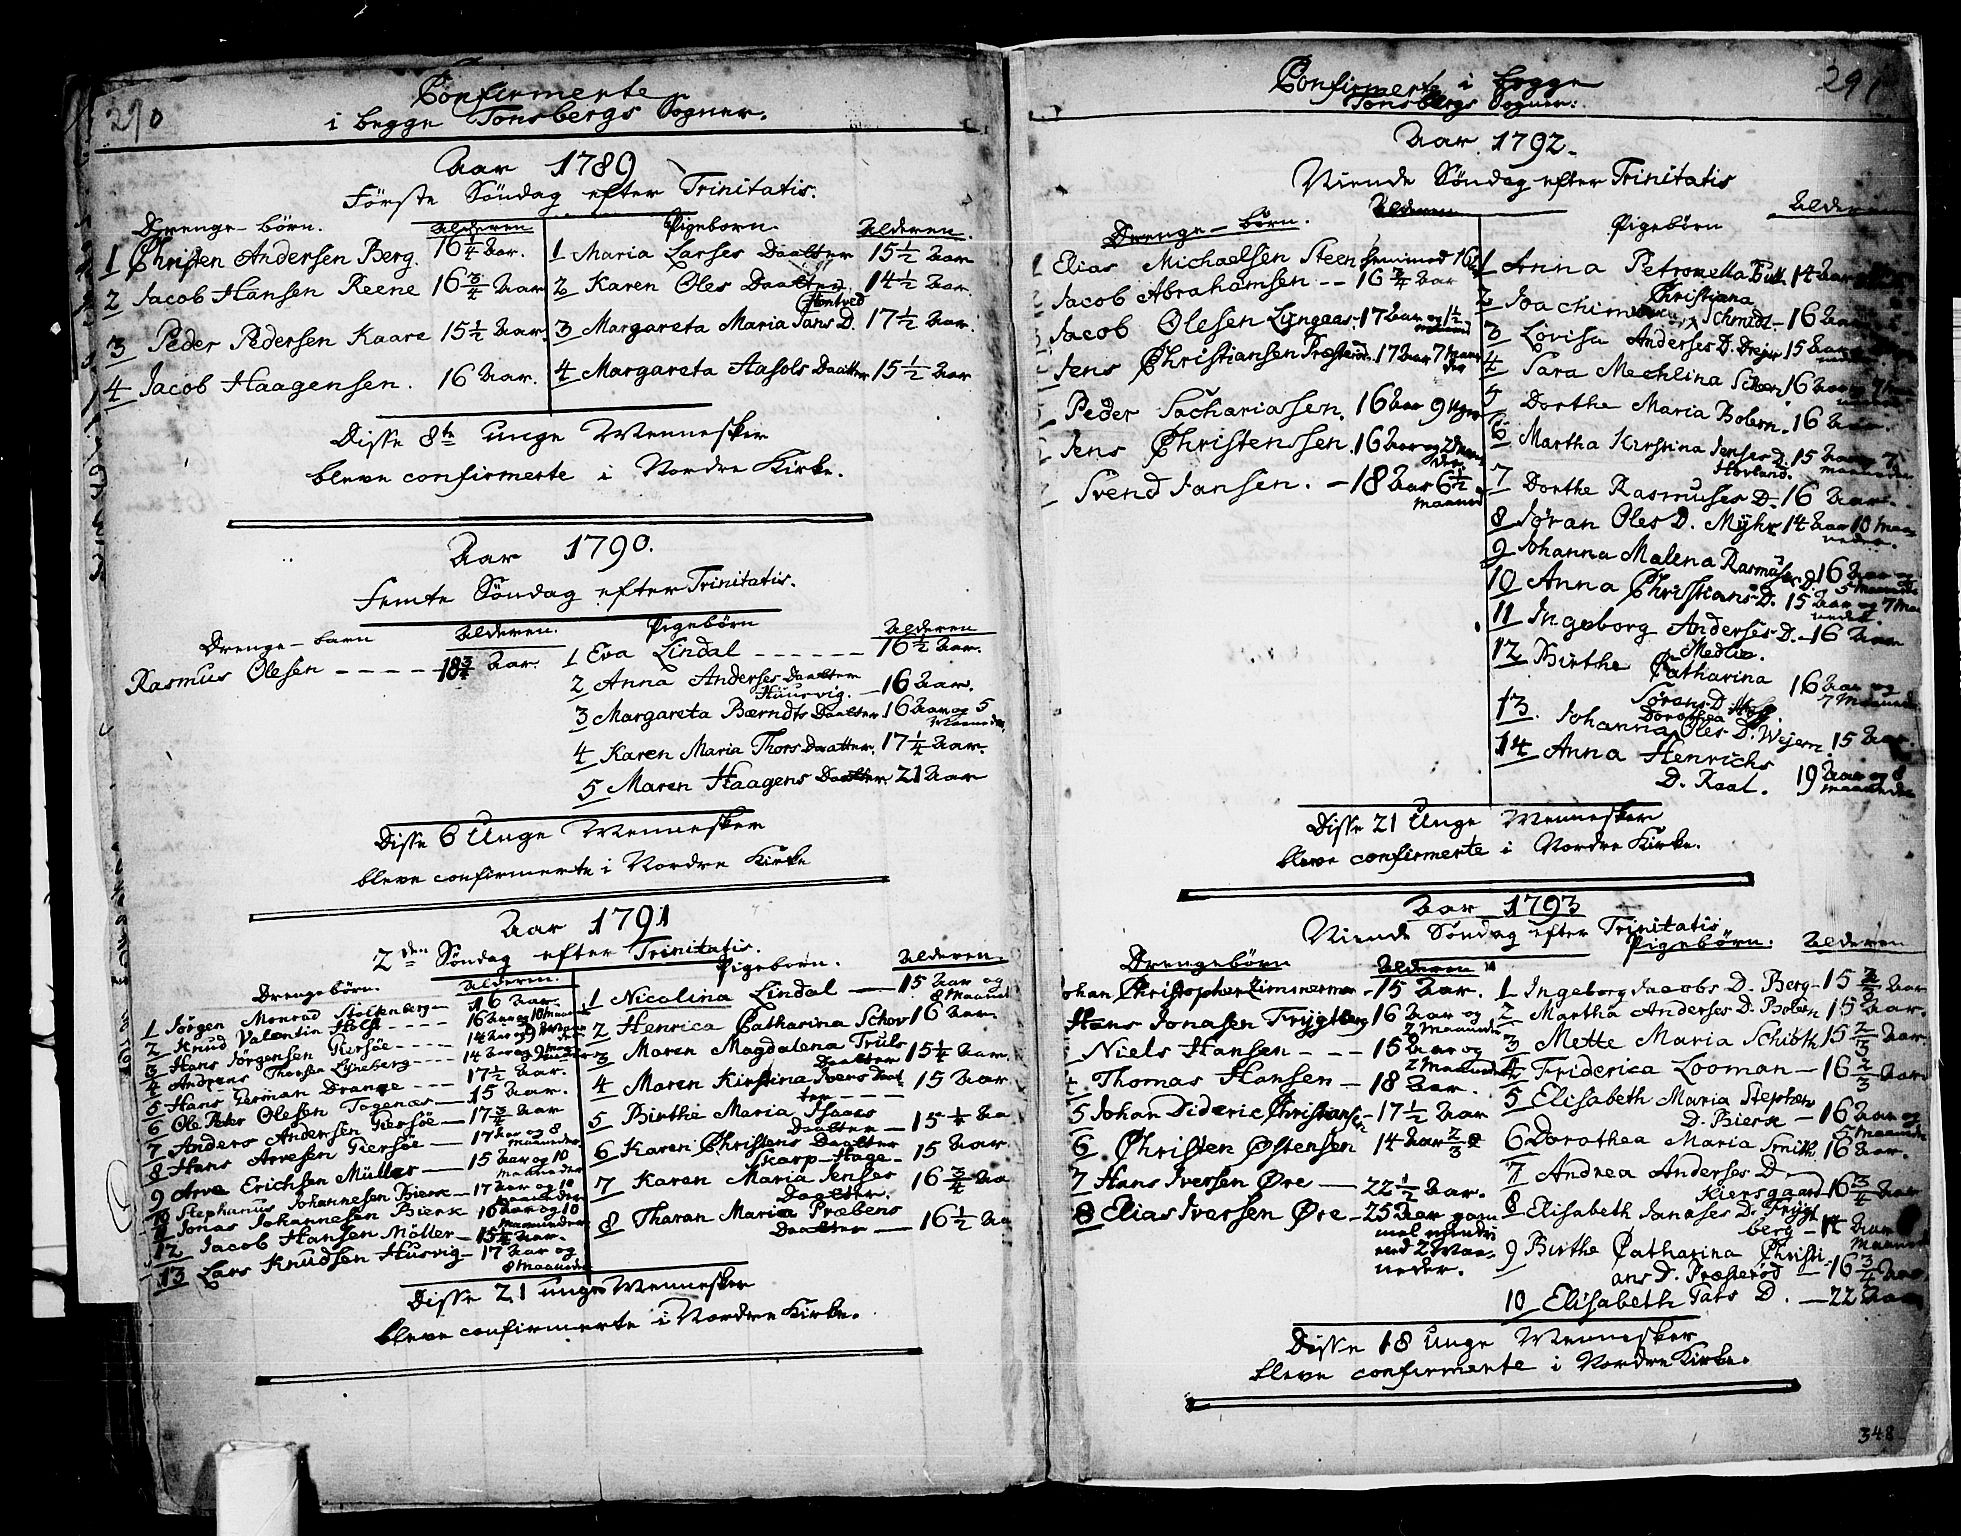 290
Confirmerte
i begge Tonsbergs Sogner.
Aar 1789
Förste Söndag efter Trinitatis.
Drenge-börn. Alderen
1 Christen Andersen Berg. 16 1/4 Aar.
2 Jacob Hansen Reene 16 3/4 Aar
3 Peder Pedersen Kaare 15 1/2 Aar.
4 Jacob Haagensen. 16 Aar.
Pigeborn. Alderen.
1 Maria Larses Daatter 15 1/2 Aar
2 Karen Oles Daatter 14 1/2 Aar.
3 Margareta Maria Jans D. Hontved 17 1/2 Aar.
4 Margareta Aasols Daatter 15 1/2 Aar
Disse 8te unge Mennesker
bleve confirmerte i Nordre Kirke.
Aar 1790.
Femte Söndag efter Trinitatis.
Drenge-barn Alderen.
Rasmus Olesen 18 3/4 Aar.
Pigebörn Alderen
1 Eva Lindal 16 1/2 Aar.
2 Anna Anderses Daatter
Huusvig. 16 Aar.
3 Margareta Bærndts Daatter 16 Aar og 5
Maaneder
4 Karen Maria Thors Daatter. 17 1/4 Aar.
5 Maren Haagens Daatter 21 Aar
Disse 6 Unge Mennesker
bleve confirmerte i Nordre Kirke
Aar 1791
2den Söndag efter Trinitatis.
Drengebörn. Alderen.
1 Jörgen Monrad Stoltenberg 16 Aar.
2 Knud Valentin Holst 16 Aar og 10 Maaneder
3 Hans Jörgensen Giersöe 14 Aar og 9 Maaneder
4 Andreas Thorsen Lyneberg 14 Aar og
5 Hans German Drange 17 1/2 Aar.
6 Ole Peter Olesen Togenæs 15 Aar.
7 Anders Andersen Giersöe 17 3/4 Aar
8 Hans Arvesen Giersöe 17 Aar og 8
Maaneder
9 Arve Erichsen Müller 15 Aar og 10
Maaneder
10 Stephanus Johannesen Bierk 17 Aar og 10
Maaneder
11 Jonas Johannesen Bierk 16 Aar og 10
Maaneder
12 Jacob Hansen Möller 15 1/4 Aar.
13 Lars Knudsen Husvig 17 Aar og
8 Maaneder
Pigeborn. Alderen.
1 Nicolina Lindal 15 Aar og
8 Maaned
2 Henrica Catharina Schov 16 Aar
3 Maren Magdalena Truls
Daatter 15 1/4 Aar.
4 Maren Kirstina Ivers Daat
ter 15 Aar
5 Birthe Maria Isaacs
Daatter 15 1/4 Aa
6 Karen Christens Daatter
Skarp-Hage 15 Aar.
7 Karen Maria Jenses
Daatter. 16 3/4 Aa
8 Tharan Maria Præbens
Daatter 16 1/2 Aa
Disse 21 unge Mennesker
bleve confirmerte i Nordre Kirke.
291
Confirmerte i begge
Tonsbergs Sogner.
Aar 1792.
Niende Söndag efter Trinitatis
Drenge-börn. Alderen
1 Elias Michaelsen Steen
Jacob Abrahamsen 16 3/4 Aar
Jacob Olesen Lyngaas. 17 Aar og 1 1/2
Maaned
Jens Christiansen Præsteröd 17 Aar 7 Maane
der
Peder Sachariassen. 16 Aar 9
Jens Christenssen 16 Aar og 2 Maane
der
Svend Jansen. 18 Aar 6 1/2
Maaned
Pigebörn Alderen
1 Anna Petronella Bull 14 Aar
2 Joachim Christiana Schmidt 16 Aar
3 Lovisa Anderses D. Drejer 15 Aar
4 Sara Mechlina 16 Aar og 7
5 Dorthe Maria Bolern. 16 Aar.
6 Martha Kirstina Jenses D. Hovland. 15 Aar og 7
Maaneder
7 Dorthe Rasmuses D. 16 Aar.
8 Jöran Oles D. Myhr 14 Aar 10 Maa
neder.
9 Johanna Malena Rasmuses D. 16 Aar og
5 Maaneder
10 Anna Christians D. 15 Aar og 7 Maa
neder.
11 Ingeborg Anderses D. 16 Aar
12 Birthe Catharina
Sörens D. 16 Aar og
7 Maaneder
13 Johanna Dorothea Oles D. Wejern 15 Aar.
14 Anna Henrichs
D. Raal. 19 Aar og 8
Maaneder
Disse 21 Unge Mennesker
bleve confirmerte i Nordre Kirke.
Aar 1793
Niende Söndag efter Trinitatis
Drengebörn Alderen
Johan Christopher Zimmerman 15 Aar.
Hans Jonasen Frygtberg 16 Aar og
2 Maaneder
Niels Hansen 15 Aar og
2 Maaneder
Thomas Hansen 18 Aar.
5 Johan Dideric Christiansen 17 1/2 Aar
6 Christen Östensen 14 Aar 2/3
7 Hans Iversen Öre 22 1/2 Aar.
8 Elias Iversen Öre 25 Aar gam
mel mindre
end 2 Maa-
neder.
Pigebörn. Alderen
1 Ingeborg Jacobs D. Berg 15 2/3 Aar
2 Martha Anderses D. Bolern 15 Aar.
3 Mette Maria Schiöth 15 2/3 Aar.
4 Friderica Looman 16 2/3 Aar
5 Elisabeth Maria Stephens
D. Bierk 16 Aar og
Maaneder
6 Dorothea Maria Smith 16 Aar.
7 Andrea Anderses D.
Kiersgaard 16 3/4 Aar
8 Elisabeth Jonases D. Frygt
berg 14 Aar
Maaneder
9 Birthe Catharina Christi-
ans D. Præsteröd 16 3/4 Aar.
10 Elisabeth Lars D. 22 Aar
Disse 18 Unge Mennesker
bleve confirmerte i Nordre Kirke.
348